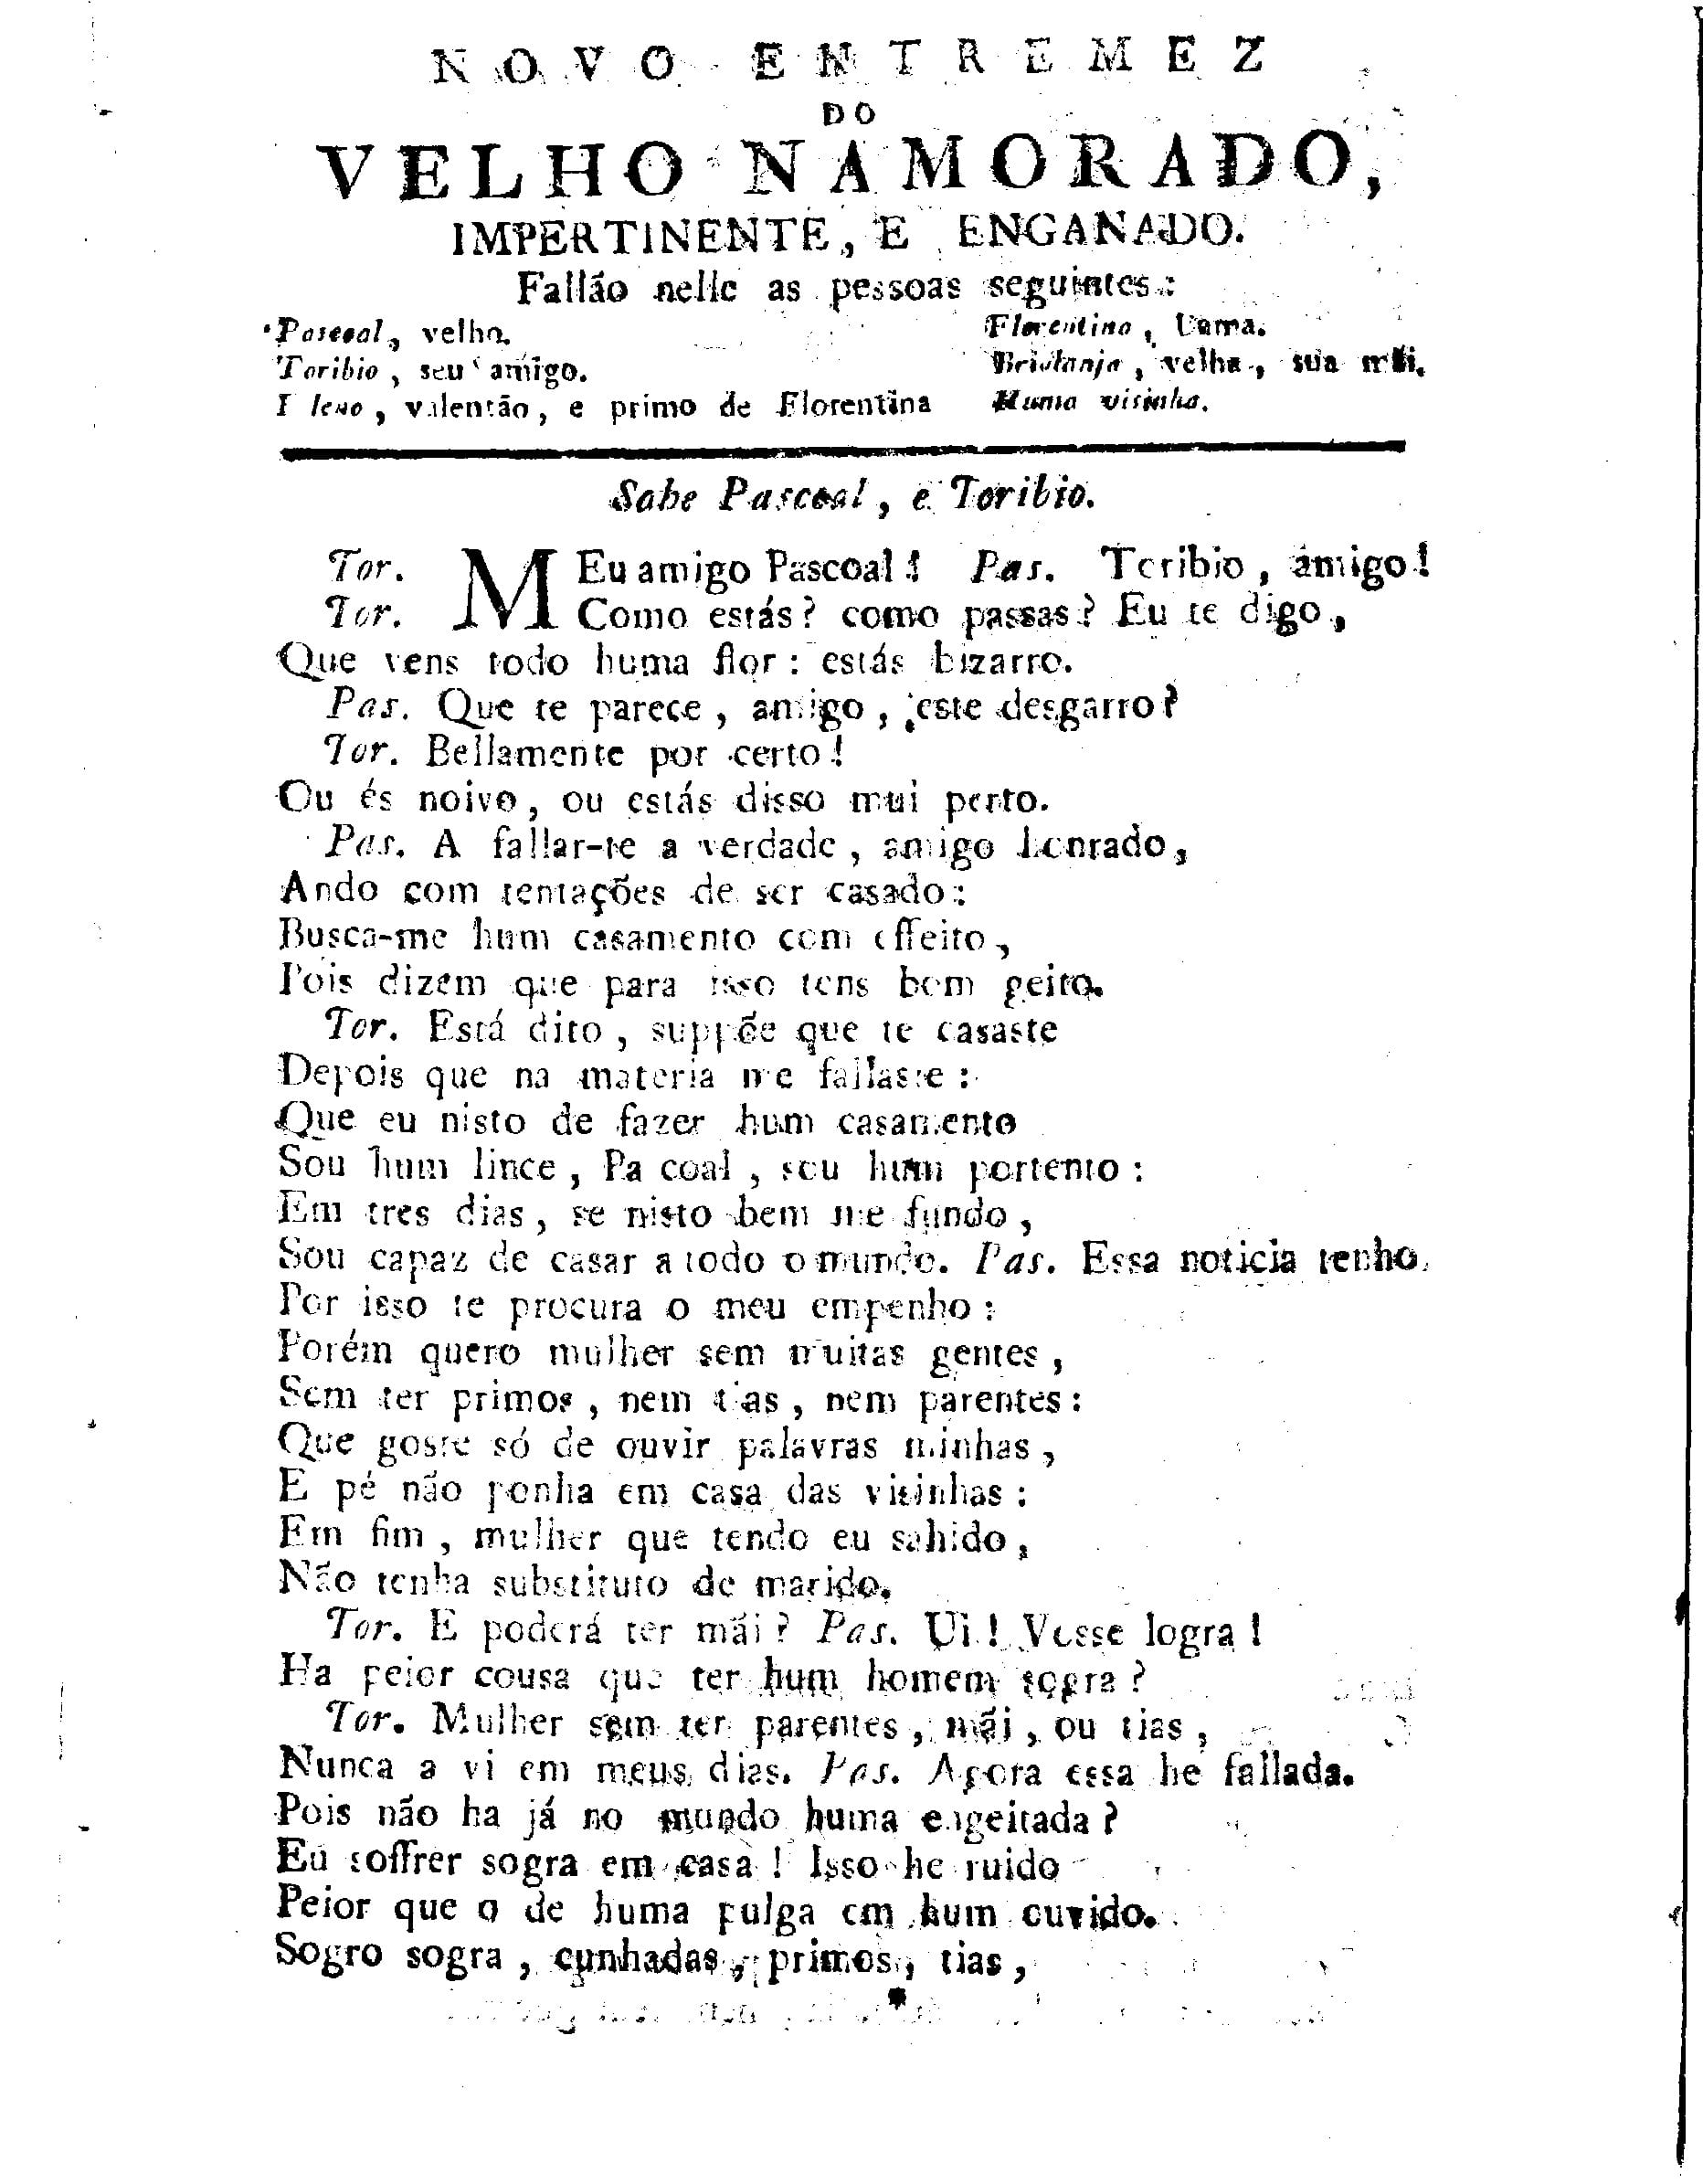 NOVO ENTREMEZ
DO
VELHO NAMORADO,
IMPERTINENTE, E ENGANADO.
Fallão nelle as pessoas seguintes:
Pascoal, velho.
Toribio, seu amigo.
valentão, e primo de Florentina
Florentina, Dama.
velha, sua mãi.
Huma visinha.
Sahe Pascoal, e Toribio.
Tor. MEu amigo Pascoal! Pas. Toribio, amigo!
Tor. Como estás? como passas? Eu te digo,
Que vens todo huma flor: estás bizarro.
Pas. Que te parece, amigo, este desgarro?
Tor. Bellamente por certo!
Ou és noivo, ou estás disso mui perto.
Pas. A fallar-te a verdade, amigo honrado,
Ando com tentações de ser casado:
Busca-me hum casamento com effeito,
Pois dizem que para isso tens bom geito.
Tor. Está dito, suppõe que te casaste
Depois que na materia me fallaste:
Que eu nisto de fazer hum casamento
Sou hum lince, Pa coal, sou hum portento:
Em tres dias, se nisto bem me fundo,
Sou capaz de casar a todo o mundo. Pas. Essa noticia tenho,
Por isso te procura o meu empenho:
Porém quero mulher sem muitas gentes,
Sem ter primos, nem tias, nem parentes:
Que goste só de ouvir palavras minhas,
E pé não ponha em casa das visinhas:
Em fim, mulher que tendo eu sahido,
Não tenha substituto de marido.
Tor. E poderá ter mãi? Pas. Ui! Vesse logra!
Ha peior cousa que ter hum homem sogra?
Tor. Mulher sem ter parentes, mãi, ou tias,
Nunca a vi em meus dias. Pas. Agora essa he fallada.
Pois não ha já no mundo huma engeitada?
Eu soffrer sogra em casa! Isso he ruido
Peior que o de huma pulga em hum ouvido.
Sogro sogra, cunhadas, primos, tias,
*